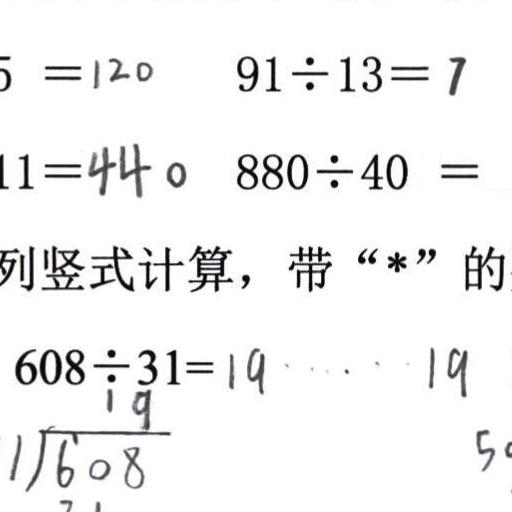 5 =120 91÷13=7
11=440 880÷40 =
列竖式计算，带“*”的
608÷31=19······19
19
1)608